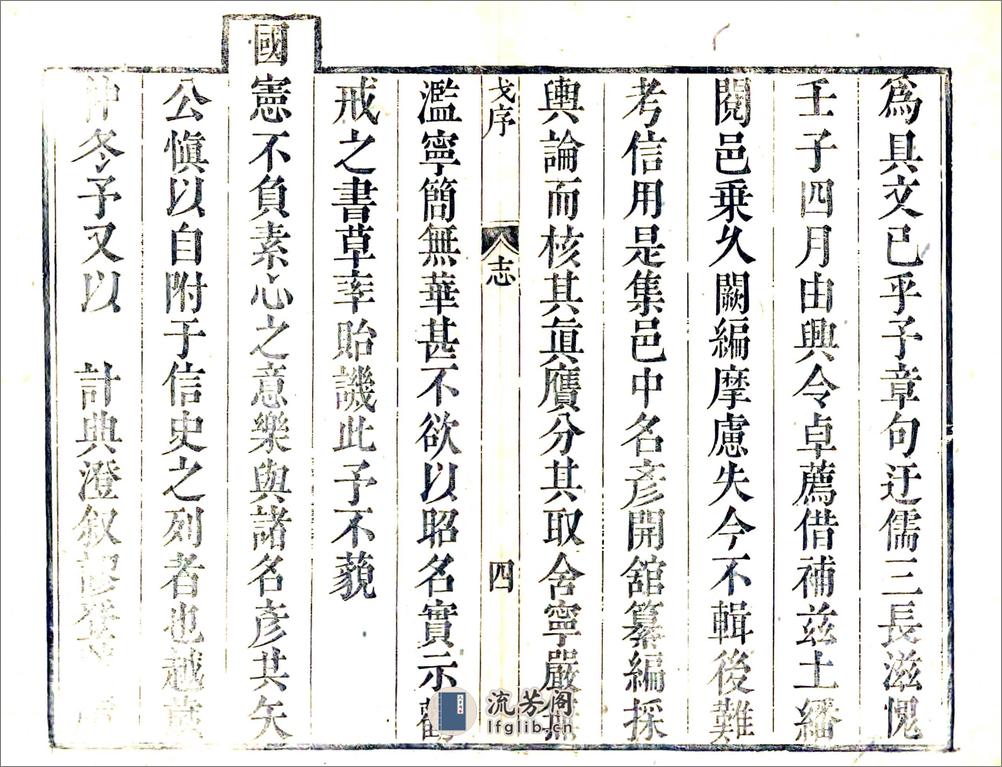 爲具文已乎予章句迂儒三長滋愧
壬子四月由興令卓薦借補兹土繙
閱邑乗久闕編摩慮失今不輯後難
考信用是集邑中名彥開舘纂編採
輿論而核其眞贋分其取舍寧嚴無
戈序 志 四
濫寧簡無華甚不欲以昭名實示勸
戒之書草率貽譏此予不藐
國憲不負素心之意樂與諸名彥共矢
公愼以自附于信史之列者也越歲
仲冬予又以 計典澄叙
流芳阁
lfglib.cn